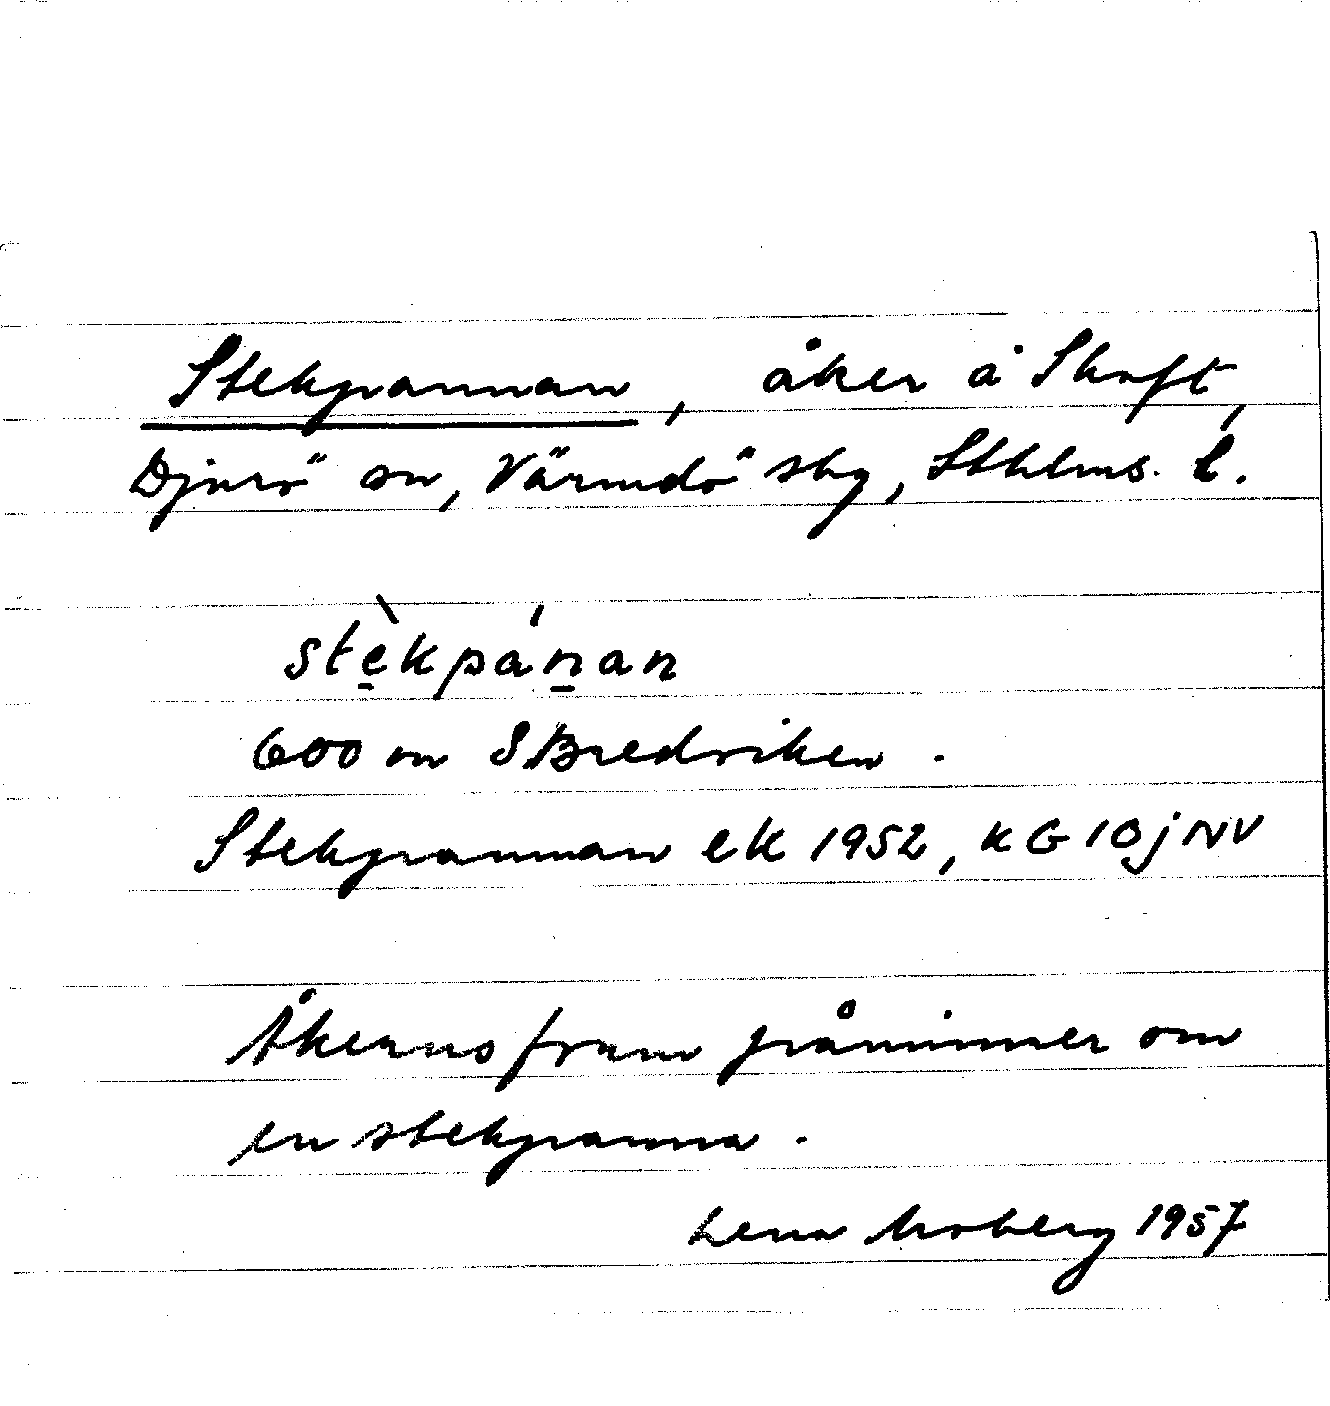 Stekpannan, åker å Skroft,
Djurö sn, Värmdö sbg, Sthlms l.
stè̱kpáṉan
600 m S Bredviken.
Stekpannan ek 1952, KG 10j NV
Åkerns form påminner om
en stekpanna.
Lena Moberg 1957